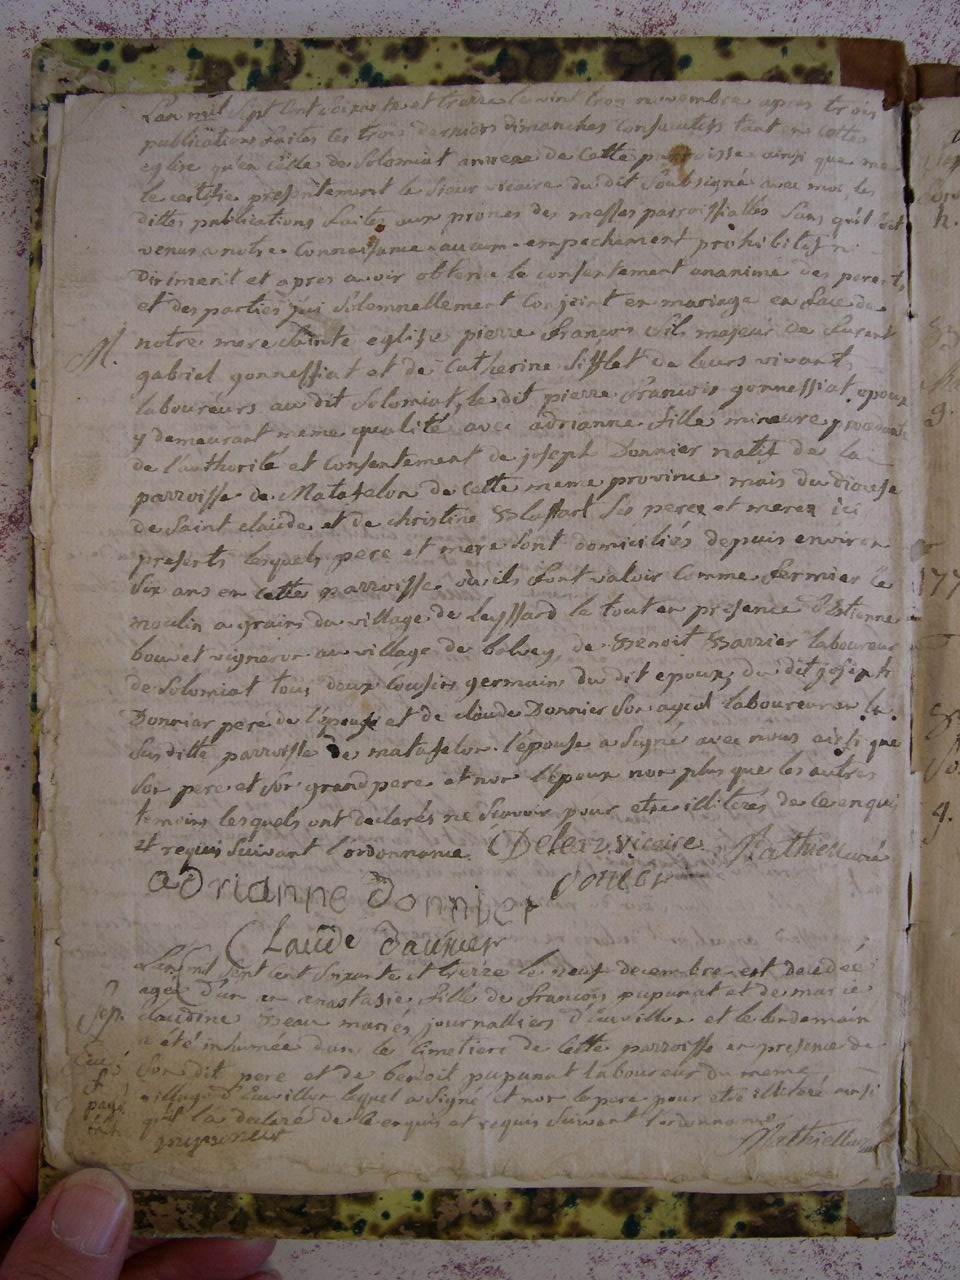 L'an mil sept cent soixante et treize le vint trois novembre apres trois
publications faites les trois derniers dimanches consecutifs tant en cette
eglise qu'en celle de Solomiat annexe de cette parroisse ainsi que me
le certifie presentement le sieur vicaire du dit soubsigné avec moi, les
dittes publications faites aux prones des messes parroissialles sans qu'il soit
venus a notre connaissance aucun empechement prohibitif n
dirimént et apres avoir obtenu le consentement unanime des parents
et des parties j'ai solemnellement conjoint en mariage en face de
notre mere sainte eglise pierre françois fils majeur de Laurent
M.
gabriel gonnessiat et de Catherine Sifflet de leurs vivants
laboureurs au dit Solomiat, le dit pierre françois gonnessiat epoux
y demeurant meme qualité avec adrianne fille mineure procedante
de l'authorité et consentement de joseph Donnier natif de la
parroisse de Matafelon de cette meme province mais du diocese
de Saint claude et de christine ses pere et mere ici
presents lesquels pere et mere sont domiciliés depuis environ
six ans en cette parroisse où ils font valoir comme fermier le
moulin a grains du village de Leyssard le tout en presence d'Etienne
bouvet vigneron au village de bolvey, de Benoit Barrier laboureur
de Solomiat tous deux cousins germains du dit epoux, du dit joseph
Donnier pere de l'épouse et de claude Donnier son ayeul laboureur en la
susditte parroisse de matafelon. l'épouse a signé avec nous ainsi que
son pere et son grand pere et non l'époux non plus que les autres
temoins lesquels ont declarés ne scavoir pour etre illiterés de ce enquis
et requis suivant l'ordonnance Delerz vicaire Mathieu curé
adrianne donnier donier
Claude daunier
L'an mil sept cent soixante et treize le neuf decembre est decedée
agée d'un an anastasie fille de francois pupunat et de marie
Sep.
claudine Beau mariés journalliers d'Euvillon et le lendemain
a été inhumée dans le cimetiere de cette parroisse en presence de
son dit pere et de benoit pupunat laboureur du meme
village d'Euvillon lequel a signé et non le pere pour etre illiteré ainsi
qu'il l'a declaré de ce enquis et requis suivant l'ordonnance
pupunat Mathieu curé
177